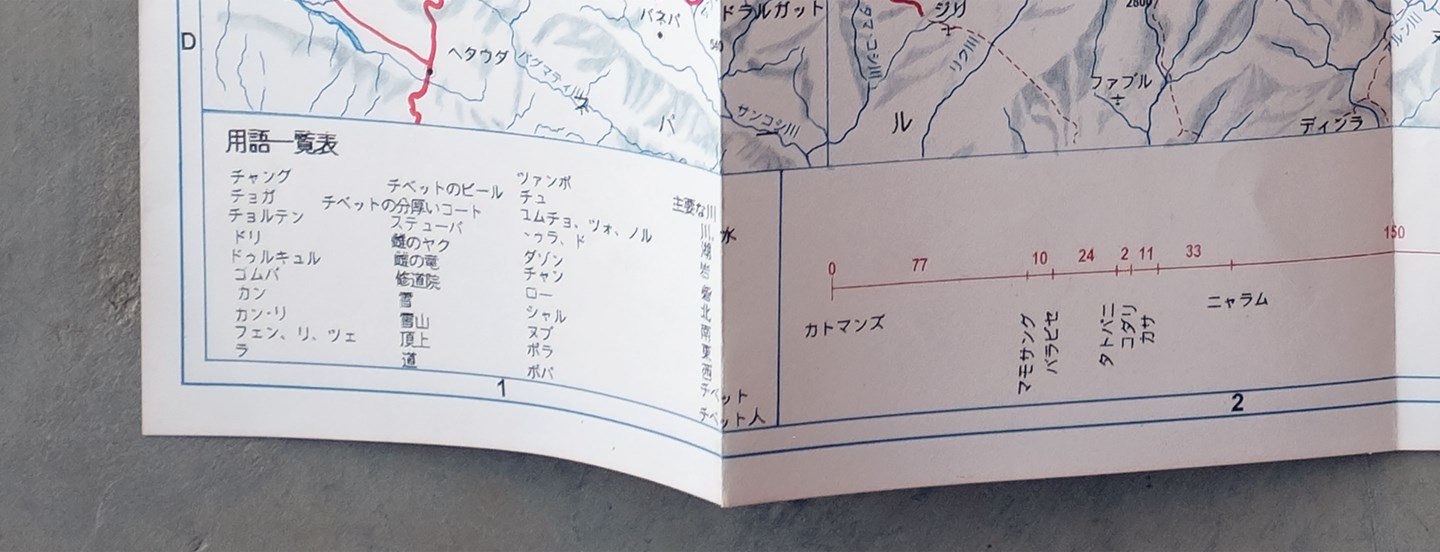 D
バネパ
ドラルガット
ジリ
2800
ヘタウダ
バグマティ川
リク川
ファブル
ネ
パ
サンコシ川
ル
ディンラ
用語一覧表
チャング チベットのビール ツァンポ 主要な川
チョガ チベットの分厚いコート チュ 川、水
チョルテン ステューパ ユムチョ、ツォ、ノル 湖
ドリ 雌のヤク 岩
ドゥルキュル 雌の竜 ダゾン
ゴムパ 修道院 チャン 北
カン 雪 ロー 南
カン・リ 雪山 シャル 東
フェン、リ、ツェ 頂上 ヌブ 西
ラ 道 ポラ チベット
ポパ チベット人
0 77 10 24 2 11 33 150
カトマンズ
マモサング
バラビセ
タトパニ
コダリ
カサ
ニャラム
1
2